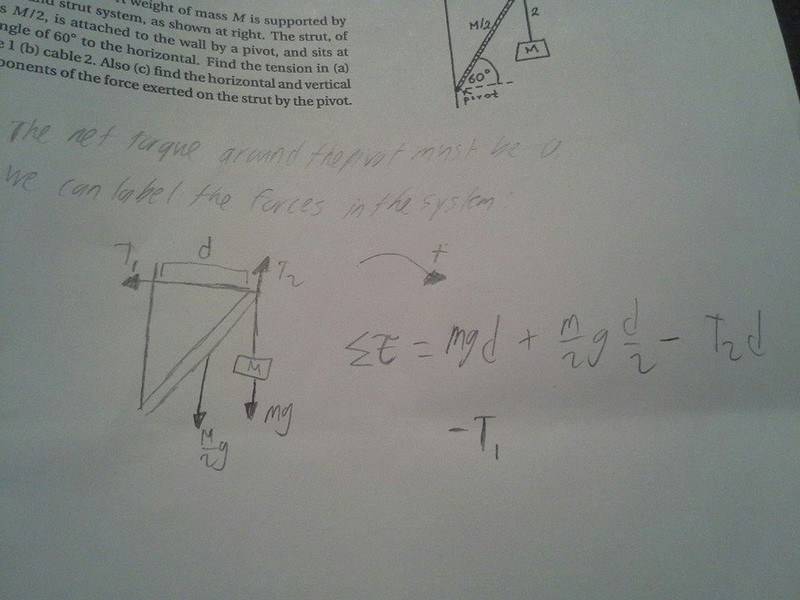 weight of mass M is supported by
and strut system, as shown at right. The strut, of
M/2, is attached to the wall by a pivot, and sits at
ngle of 60° to the horizontal. Find the tension in (a)
e 1 (b) cable 2. Also (c) find the horizontal and vertical
ponents of the force exerted on the strut by the pivot.
M/2
2
M
60°
pivot
The net torque around the pivot must be 0.
We can label the forces in the system:
T₁
d
T₂
+
M
Mg
M/2 g
Στ = mgd + m/2 g d/2 - T₂d
- T₁